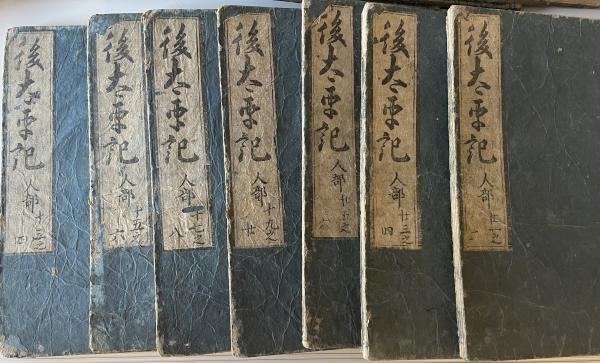 後太平記 人部 十三之四
後太平記 人部 十五之六
後太平記 人部 十七之八
後太平記 人部 十九之廿
後太平記 人部 廿五之
後太平記 人部 廿三之四
後太平記 人部 廿一之二